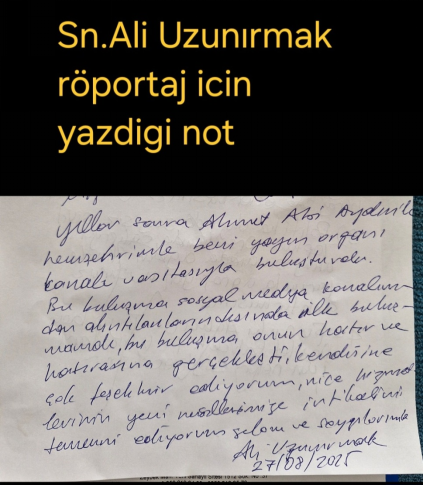 Sn.Ali Uzunırmak
röportaj icin
yazdigi not
Yıllar sonra Ahmet Abi Aydınlı
hemşehrimle beni yayın organı
kanalı vasıtasıyla buluşturdu.
Bu buluşma sosyal medya
ilk
bu buluşma, onun hatır ve
hatırasına gerçekleşti, kendisine
çok teşekkür ediyorum, nice hizmet
lerinin yeni nesillerimize intikalini
temenni ediyorum selam ve saygılarımla
Ali Uzunırmak
27/08/2025